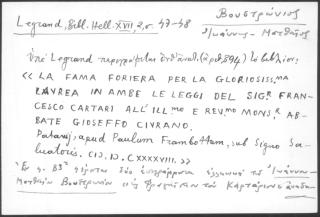 Legrand, Bibl. Hell. XVII, 2, σ. 47-48
Βουστρώνιος
Ἰωάννης-Ματθαῖος
Ὑπὸ Legrand περιγράφεται (ἀριθ. 594) τὸ βιβλίον:
« LA FAMA FORIERA PER LA GLORIOSISS.MA
LAUREA IN AMBE LE LEGGI DEL SIG.R FRAN-
CESCO CARTARI ALL' ILL.MO E REV.MO MONS.R AB-
BATE GIOSEFFO CIVRANO.
Patavij, apud Paulum Frambottum, sub Signo Sa-
luatoris. CIↃ.IↃ.CXXXXVIII. »
Ἐν σ. 83 ἐπίγραμμα ἑλληνικὸν τοῦ Ἰωάννου-
Ματθαίου Βουστρωνίου εἰς τὸν